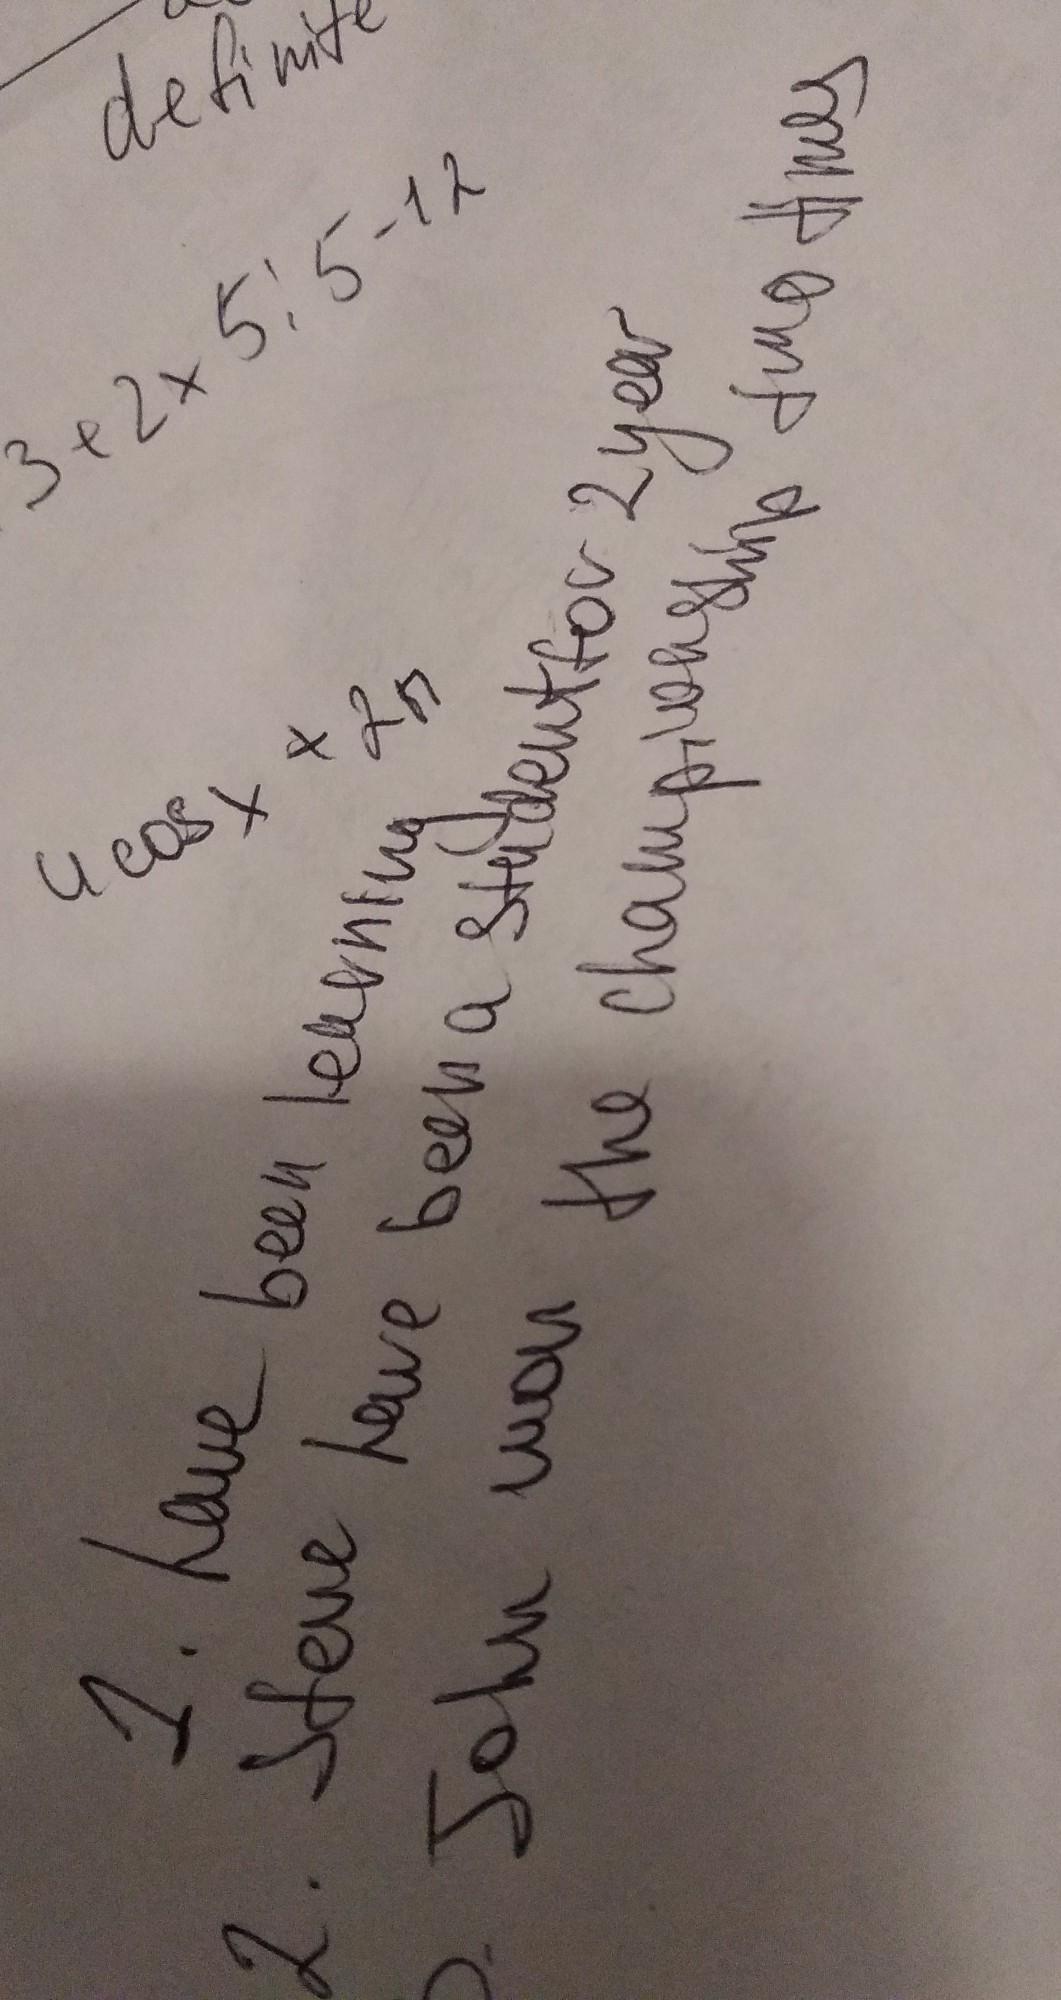 definite
3+2x5:5-12
4cosx x 2n
1. have been lerning
2. Steve have been a student for 2 year
John won the championship two times